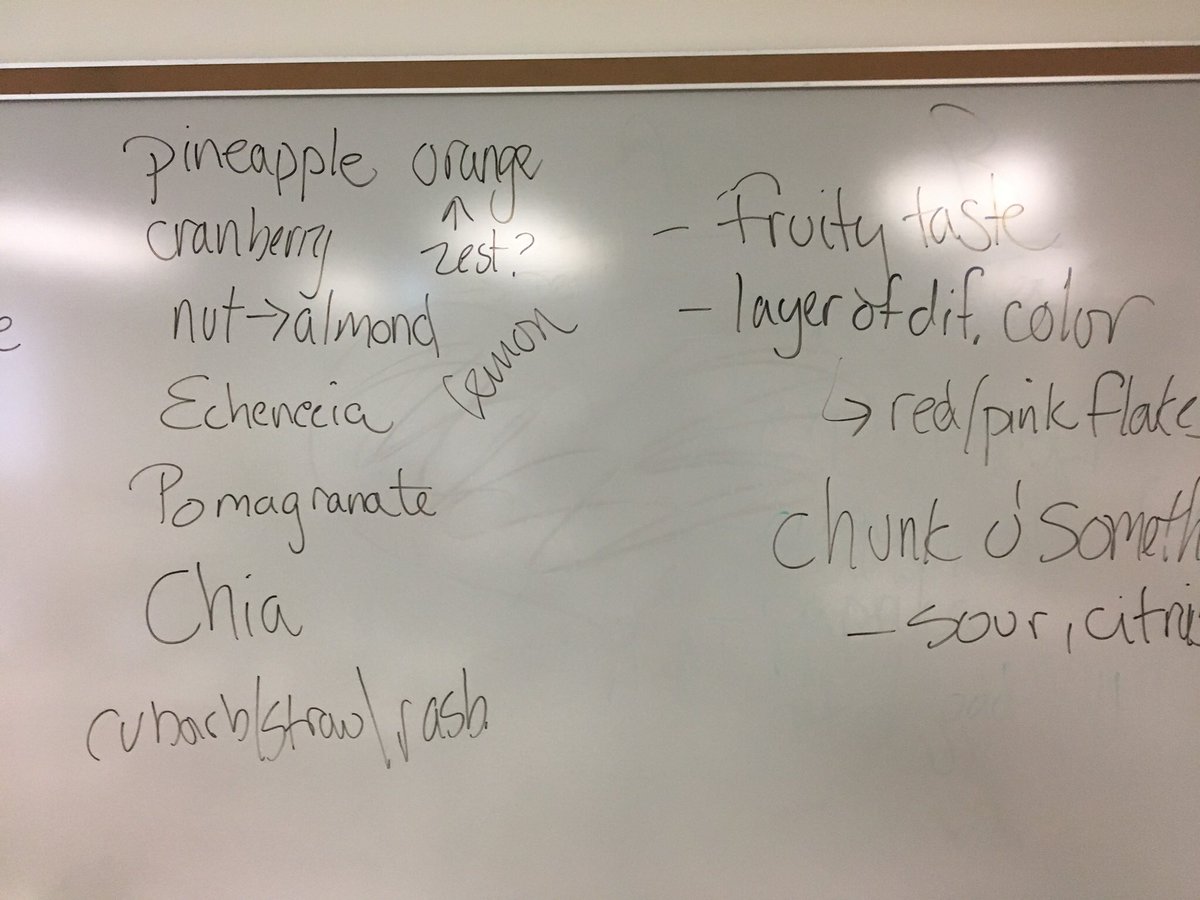 pineapple orange
cranberry
↑
zest?
nut→almond
lemon
Echenecia
Pomagranate
Chia
rubarb/straw\rasb.
- fruity taste
- layer of dif. color
↳ red/pink flakes
chunk o' someth
- sour, citrus